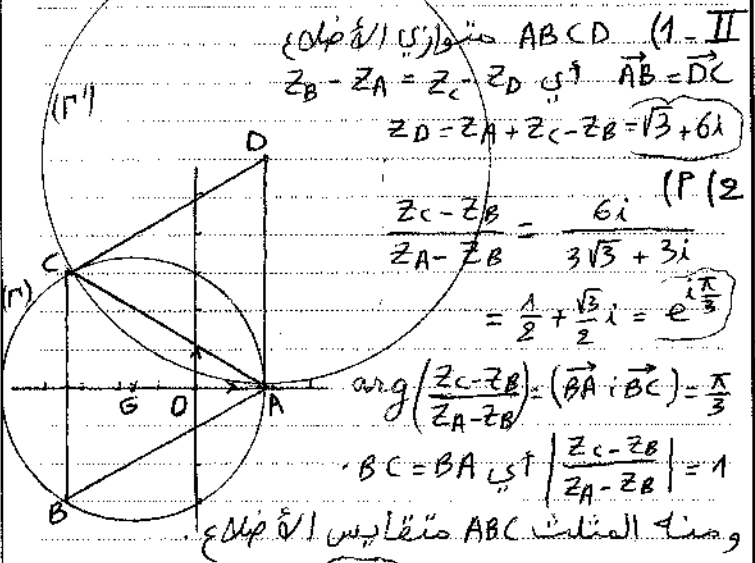 II - 1) ABCD متوازي الأضلاع
$\vec{AB} = \vec{DC}$ أي $Z_B - Z_A = Z_C - Z_D$
$Z_D = Z_A + Z_C - Z_B = \sqrt{3} + 6i$
2) أ)
$\frac{Z_C - Z_B}{Z_A - Z_B} = \frac{6i}{3\sqrt{3} + 3i}$
$= \frac{1}{2} + \frac{\sqrt{3}}{2} i = e^{i\frac{\pi}{3}}$
$arg\left(\frac{Z_C - Z_B}{Z_A - Z_B}\right) = (\vec{BA} ; \vec{BC}) = \frac{\pi}{3}$
$\left|\frac{Z_C - Z_B}{Z_A - Z_B}\right| = 1$ أي BC = BA .
ومنه المثلث ABC متقايس الأضلاع .
(Γ')
D
C
(Γ)
G
O
A
B